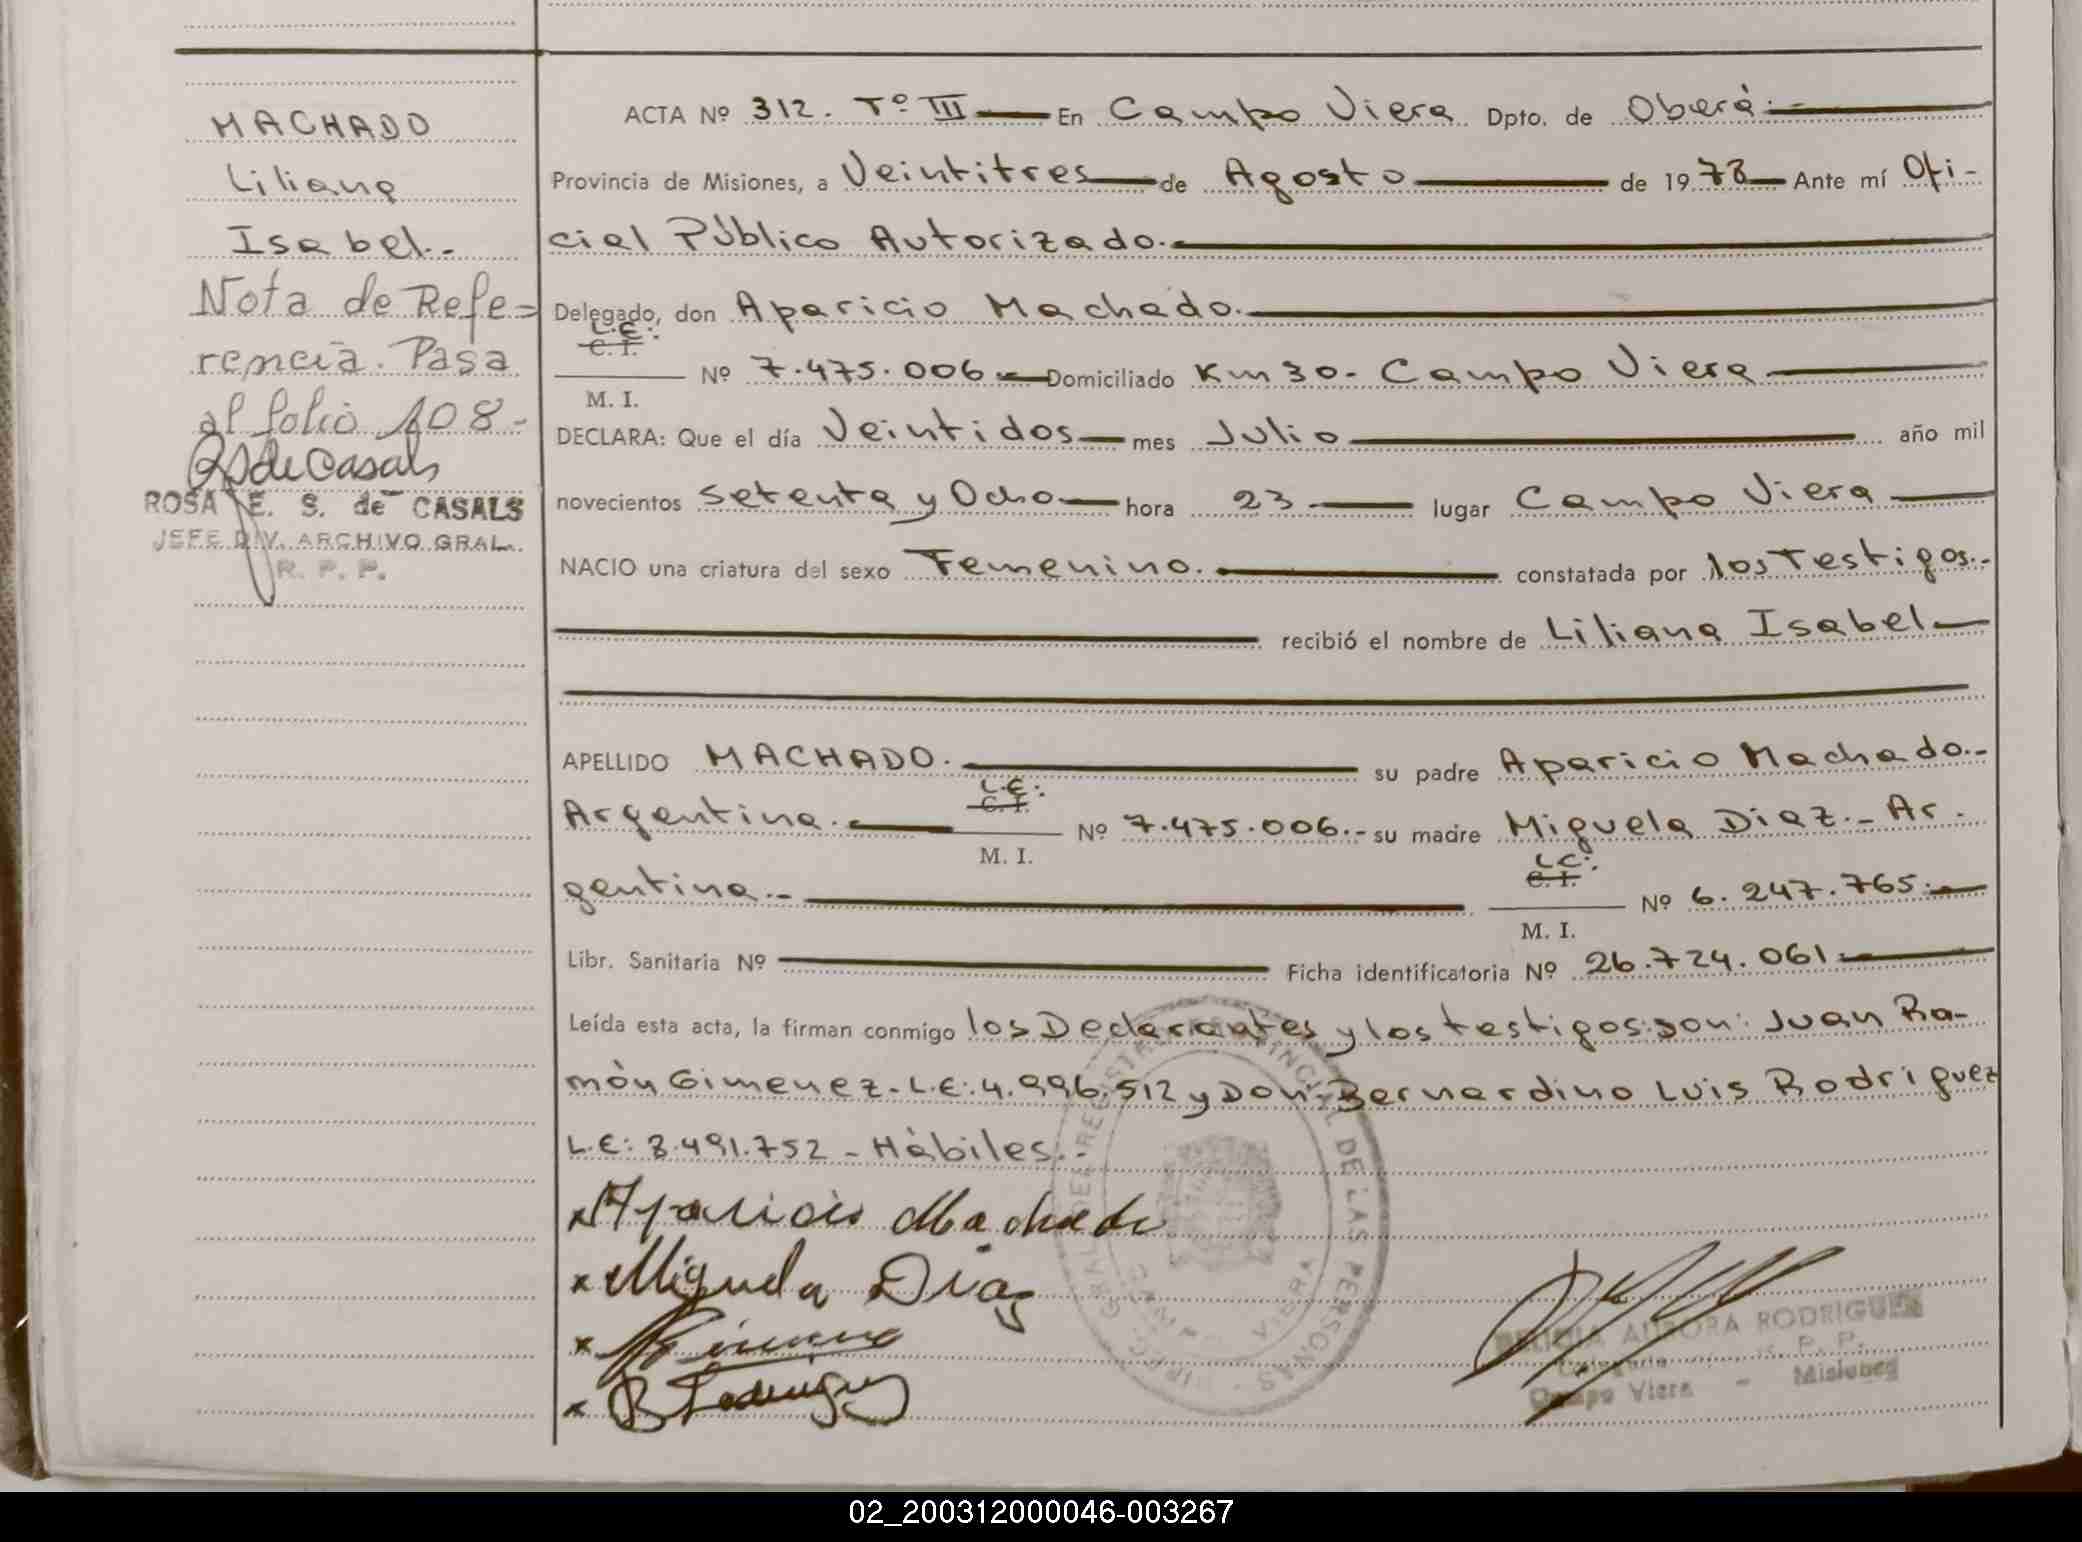 MACHADO
Liliana
Isabel.-
Nota de Refe=
rencia. Pasa
al folio 108-
RSdeCasals
ROSA E. S. de CASALS
JEFE DIV. ARCHIVO GRAL.
R. P. P.
ACTA Nº 312. Tº III — En Campo Viera Dpto. de Oberá.-
Provincia de Misiones, a Veintitres — de Agosto — de 1978 — Ante mí Ofi-
cial Público Autorizado.-
Delegado, don Aparicio Machado.-
L.E:
C. I.
M. I.
Nº 7.475.006.- Domiciliado Km 30- Campo Viera —
DECLARA: Que el día Veintidos — mes Julio — año mil
novecientos Setenta y Ocho — hora 23 — lugar Campo Viera —
NACIO una criatura del sexo Femenino. — constatada por los Testigos.-
recibió el nombre de Liliana Isabel —
APELLIDO MACHADO. — su padre Aparicio Machado.-
Argentina. — L.E: C. I. M. I. Nº 7.475.006.- su madre Miguela Diaz.- Ar.
gentina.- — L.C: C. I. M. I. Nº 6.247.765.-
Libr. Sanitaria Nº — Ficha identificatoria Nº 26.724.061 —
Leída esta acta, la firman conmigo los Declarantes y los testigos: son: Juan Ra-
món Gimenez- L.E: 4.996.512 y Don: Bernardino Luis Rodriguez
L.E: 3.491.752 - Hábiles.-
x Aparicio Machado
x Miguela Diaz
x Gimenez
x B Rodriguez
DIREC. GRAL. DEL REGISTRO PROVINCIAL DE LAS PERSONAS
CAMPO VIERA
AURORA RODRIGUEZ
R. P. P.
Campo Viera - Misiones
02_200312000046-003267